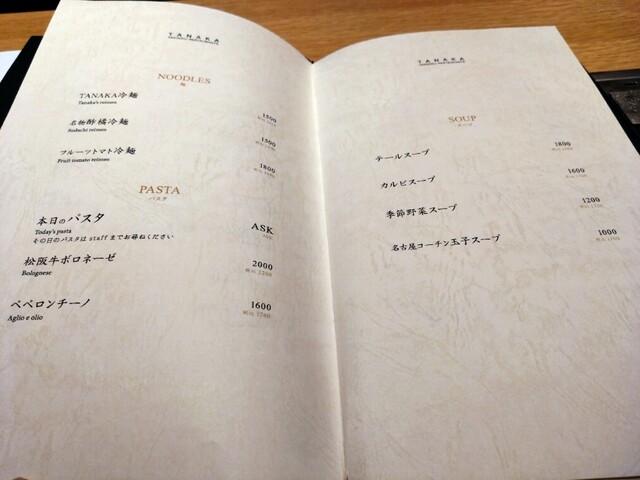 TANAKA
NOODLES
麺
TANAKA冷麺
Tanaka's reimen
1500
名物酢橘冷麺
Sudachi reimen
1500
フルーツトマト冷麺
Fruit tomato reimen
1800
PASTA
パスタ
本日のパスタ
Today's pasta
その日のパスタは staff までお尋ねください
ASK
松阪牛ボロネーゼ
Bolognese
2000
税込 2200
ペペロンチーノ
Aglio e olio
1600
税込 1760
TANAKA
SOUP
スープ
テールスープ
1800
カルビスープ
1600
季節野菜スープ
1200
名古屋コーチン玉子スープ
1000
税込 1100